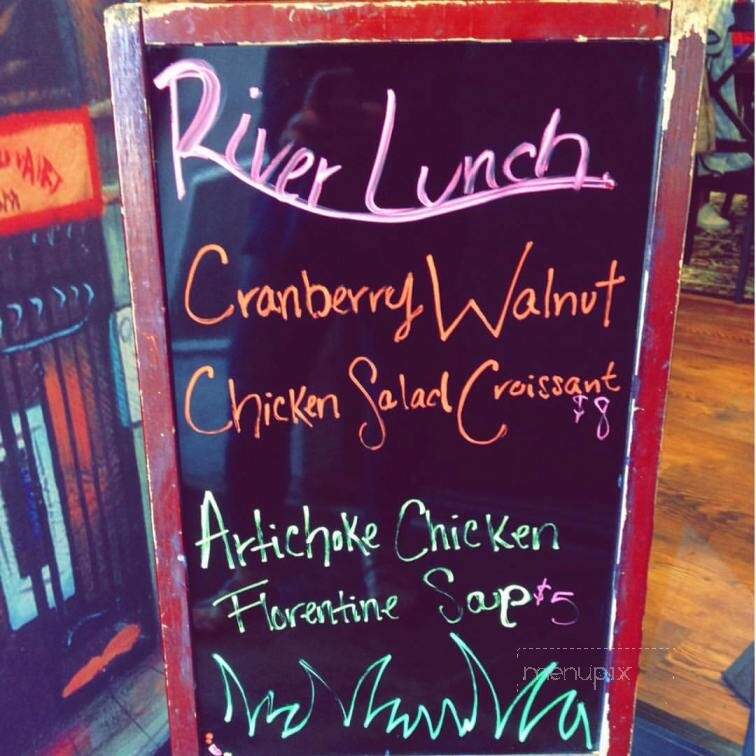 River Lunch
Cranberry Walnut
Chicken Salad Croissant
$8
Artichoke Chicken
Florentine Soup $5
menupix